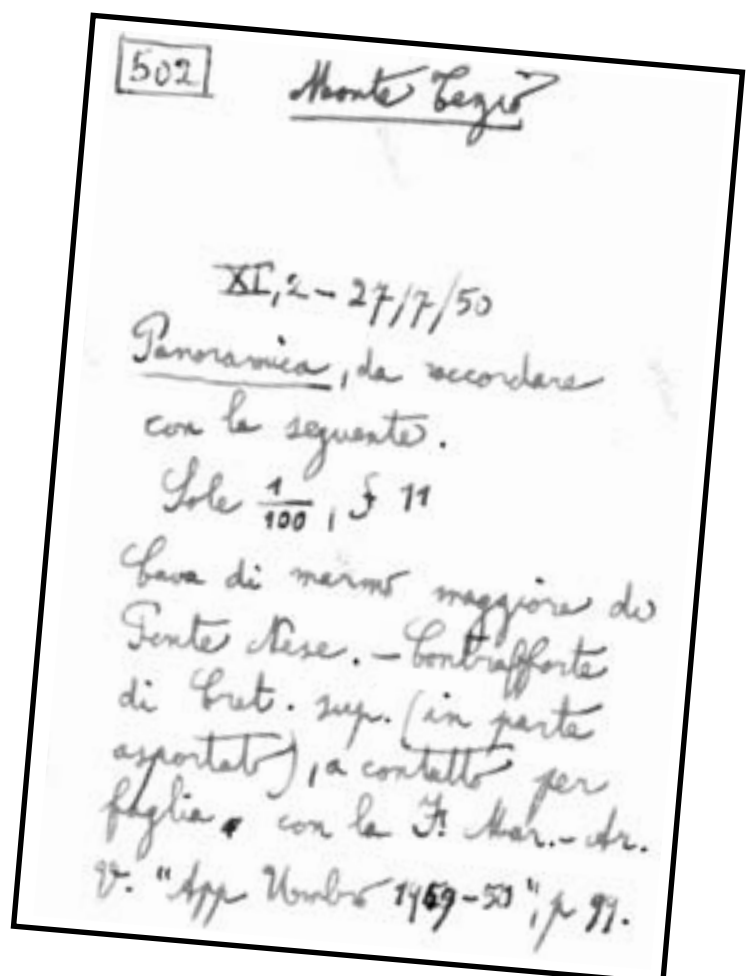 502
Monte Tezio
XI, 2 - 27/7/50
Panoramica, da raccordare
con la seguente.
Sole 1/100, f 11
Cava di marmo maggiore di
Ponte Nese. - Contrafforte
di Cret. sup. (in parte
asportato), a contatto per
faglia, con la F. Mar.-Ar.
v. "App Umbro 19 -50", p 99.